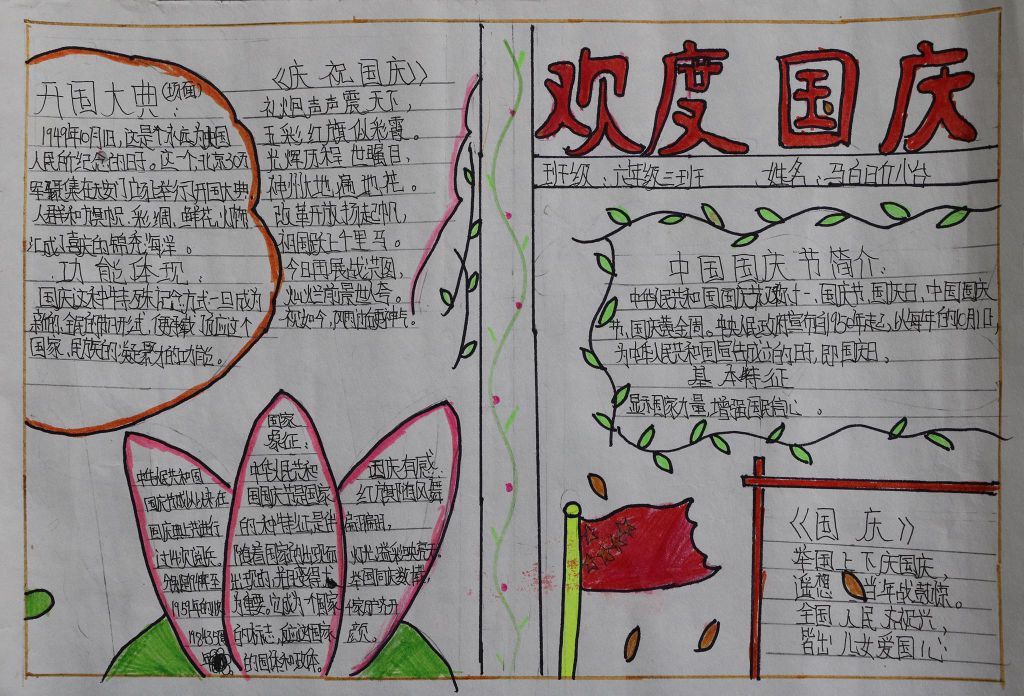 欢度国庆
班级：六年级三班 姓名：马白日介小台
开国大典：(场面)
1949年10月1日，这是个永远为中国
人民所纪念的日日。这一个北京30万
军聚集在天安门广场举行开国大典
人群和旗帜、彩绸、鲜花、灯饰
汇成了喜庆的锦秀海洋。
功能体现：
国庆这种特殊纪念方式一旦成为
新的、全民的节日形式，便承载了反应这个
国家、民族的凝聚力的功能。
《庆祝国庆》
礼炮声声震天下，
五彩红旗似彩霞。
光辉历程世瞩目，
神州大地遍地花。
改革开放扬起帆，
祖国跃上千里马。
今日再展战宏图，
灿烂前景世人夸。
中国国庆节简介：
中华人民共和国国庆节又称十一、国庆节、国庆日、中国国庆
节、国庆黄金周。中央人民政府宣布自1950年起，以每年的10月1日，
为中华人民共和国宣告成立的日子，即国庆日。
基本特征
显和国家力量，增强国民信心。
国家
象征：
中华人民共和
国国庆节是国家
的一种特征，是伴
随着国家的出现而
出现的，并且变得尤
为重要。它成为一个国家
的标志，反应这国家
的国体和政体。
中华人民共和国
国庆节成立以来在
国庆典节进行
过
1959年
国庆有感
红旗随风舞
翩翩，
举国同庆数
颜。
《国庆》
举国上下庆国庆，
遥想当年战鼓惊。
全国人民齐祝兴，
皆出儿女爱国心：